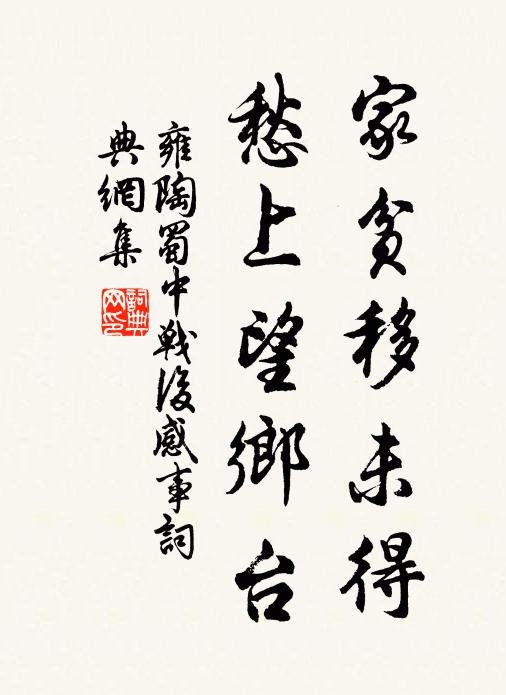 家貧移未得
愁上望鄉台
雍陶蜀中戰後感事詞
典網集
詞典網印